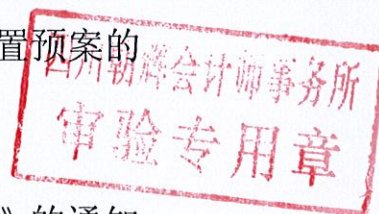 置预案的
四川朝辉会计师事务所
审验专用章
》的通知